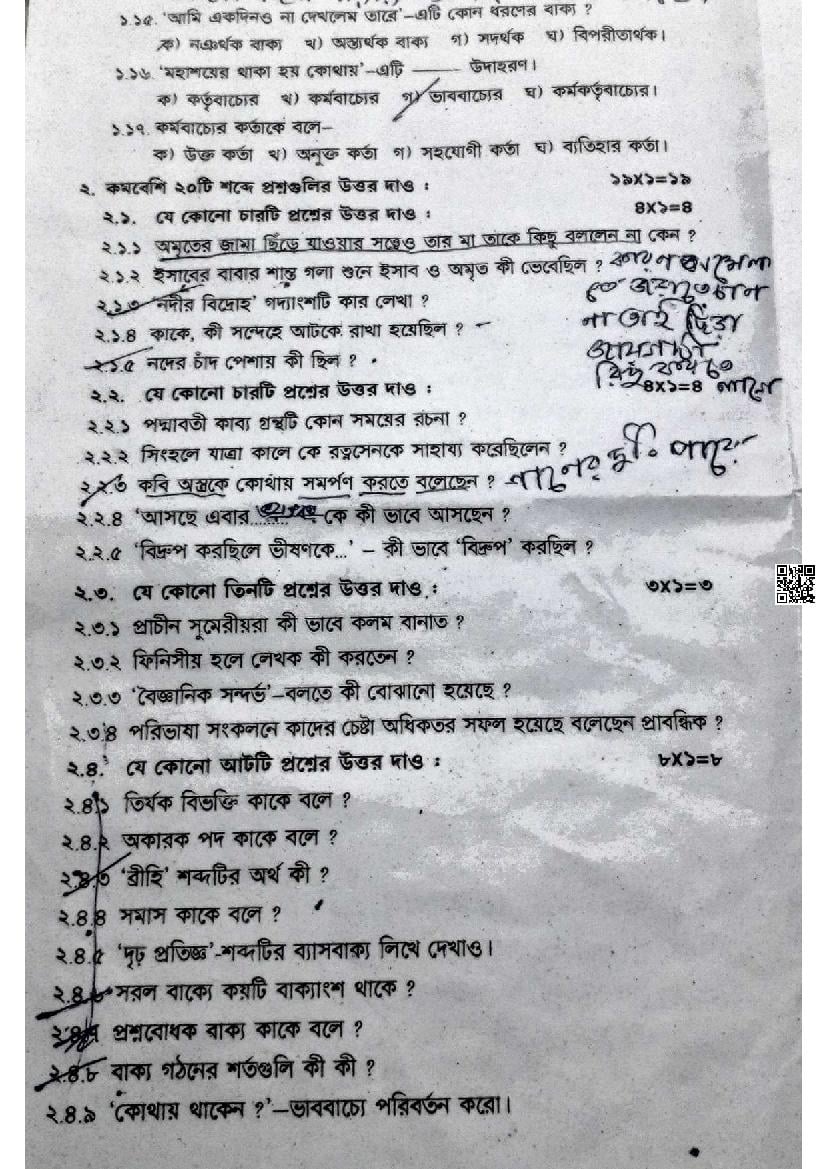 ১.১৫. 'আমি একদিনও না দেখলেম তারে'–এটি কোন ধরণের বাক্য ?
ক) নঞর্থক বাক্য খ) অস্ত্যর্থক বাক্য গ) সদর্থক ঘ) বিপরীতার্থক।
১.১৬. 'মহাশয়ের থাকা হয় কোথায়'–এটি ——— উদাহরণ।
ক) কর্তৃবাচ্যের খ) কর্মবাচ্যের গ) ভাববাচ্যের ঘ) কর্মকর্তৃবাচ্যের।
১.১৭. কর্মবাচ্যের কর্তাকে বলে–
ক) উক্ত কর্তা খ) অনুক্ত কর্তা গ) সহযোগী কর্তা ঘ) ব্যতিহার কর্তা।
২. কমবেশি ২০টি শব্দে প্রশ্নগুলির উত্তর দাও : ১৯X১=১৯
২.১. যে কোনো চারটি প্রশ্নের উত্তর দাও : ৪X১=৪
২.১.১ অমৃতের জামা ছিঁড়ে যাওয়ার সত্ত্বেও তার মা তাকে কিছু বললেন না কেন ?
২.১.২ ইসাবের বাবার শান্ত গলা শুনে ইসাব ও অমৃত কী ভেবেছিল ?
২.১.৩ 'নদীর বিদ্রোহ' গদ্যাংশটি কার লেখা ?
না তাই
২.১.৪ কাকে, কী সন্দেহে আটকে রাখা হয়েছিল ?
২.১.৫ নদের চাঁদ পেশায় কী ছিল ?
২.২. যে কোনো চারটি প্রশ্নের উত্তর দাও : ৪X১=৪
২.২.১ পদ্মাবতী কাব্য গ্রন্থটি কোন সময়ের রচনা ?
২.২.২ সিংহলে যাত্রা কালে কে রত্নসেনকে সাহায্য করেছিলেন ?
২.২.৩ কবি অস্ত্রকে কোথায় সমর্পণ করতে বলেছেন ? গানের দুটি পায়ে
২.২.৪ 'আসছে এবার কে কী ভাবে আসছেন ?
২.২.৫ 'বিদ্রুপ করছিলে ভীষণকে...' – কী ভাবে 'বিদ্রুপ' করছিল ?
২.৩. যে কোনো তিনটি প্রশ্নের উত্তর দাও : ৩X১=৩
২.৩.১ প্রাচীন সুমেরীয়রা কী ভাবে কলম বানাত ?
২.৩.২ ফিনিসীয় হলে লেখক কী করতেন ?
২.৩.৩ 'বৈজ্ঞানিক সন্দর্ভ'–বলতে কী বোঝানো হয়েছে ?
২.৩.৪ পরিভাষা সংকলনে কাদের চেষ্টা অধিকতর সফল হয়েছে বলেছেন প্রাবন্ধিক ?
২.৪. যে কোনো আটটি প্রশ্নের উত্তর দাও : ৮X১=৮
২.৪.১ তির্যক বিভক্তি কাকে বলে ?
২.৪.২ অকারক পদ কাকে বলে ?
২.৪.৩ 'ব্রীহি' শব্দটির অর্থ কী ?
২.৪.৪ সমাস কাকে বলে ?
২.৪.৫ 'দৃঢ় প্রতিজ্ঞ'-শব্দটির ব্যাসবাক্য লিখে দেখাও।
২.৪.৬ সরল বাক্যে কয়টি বাক্যাংশ থাকে ?
২.৪.৭ প্রশ্নবোধক বাক্য কাকে বলে ?
২.৪.৮ বাক্য গঠনের শর্তগুলি কী কী ?
২.৪.৯ 'কোথায় থাকেন ?'–ভাববাচ্যে পরিবর্তন করো।